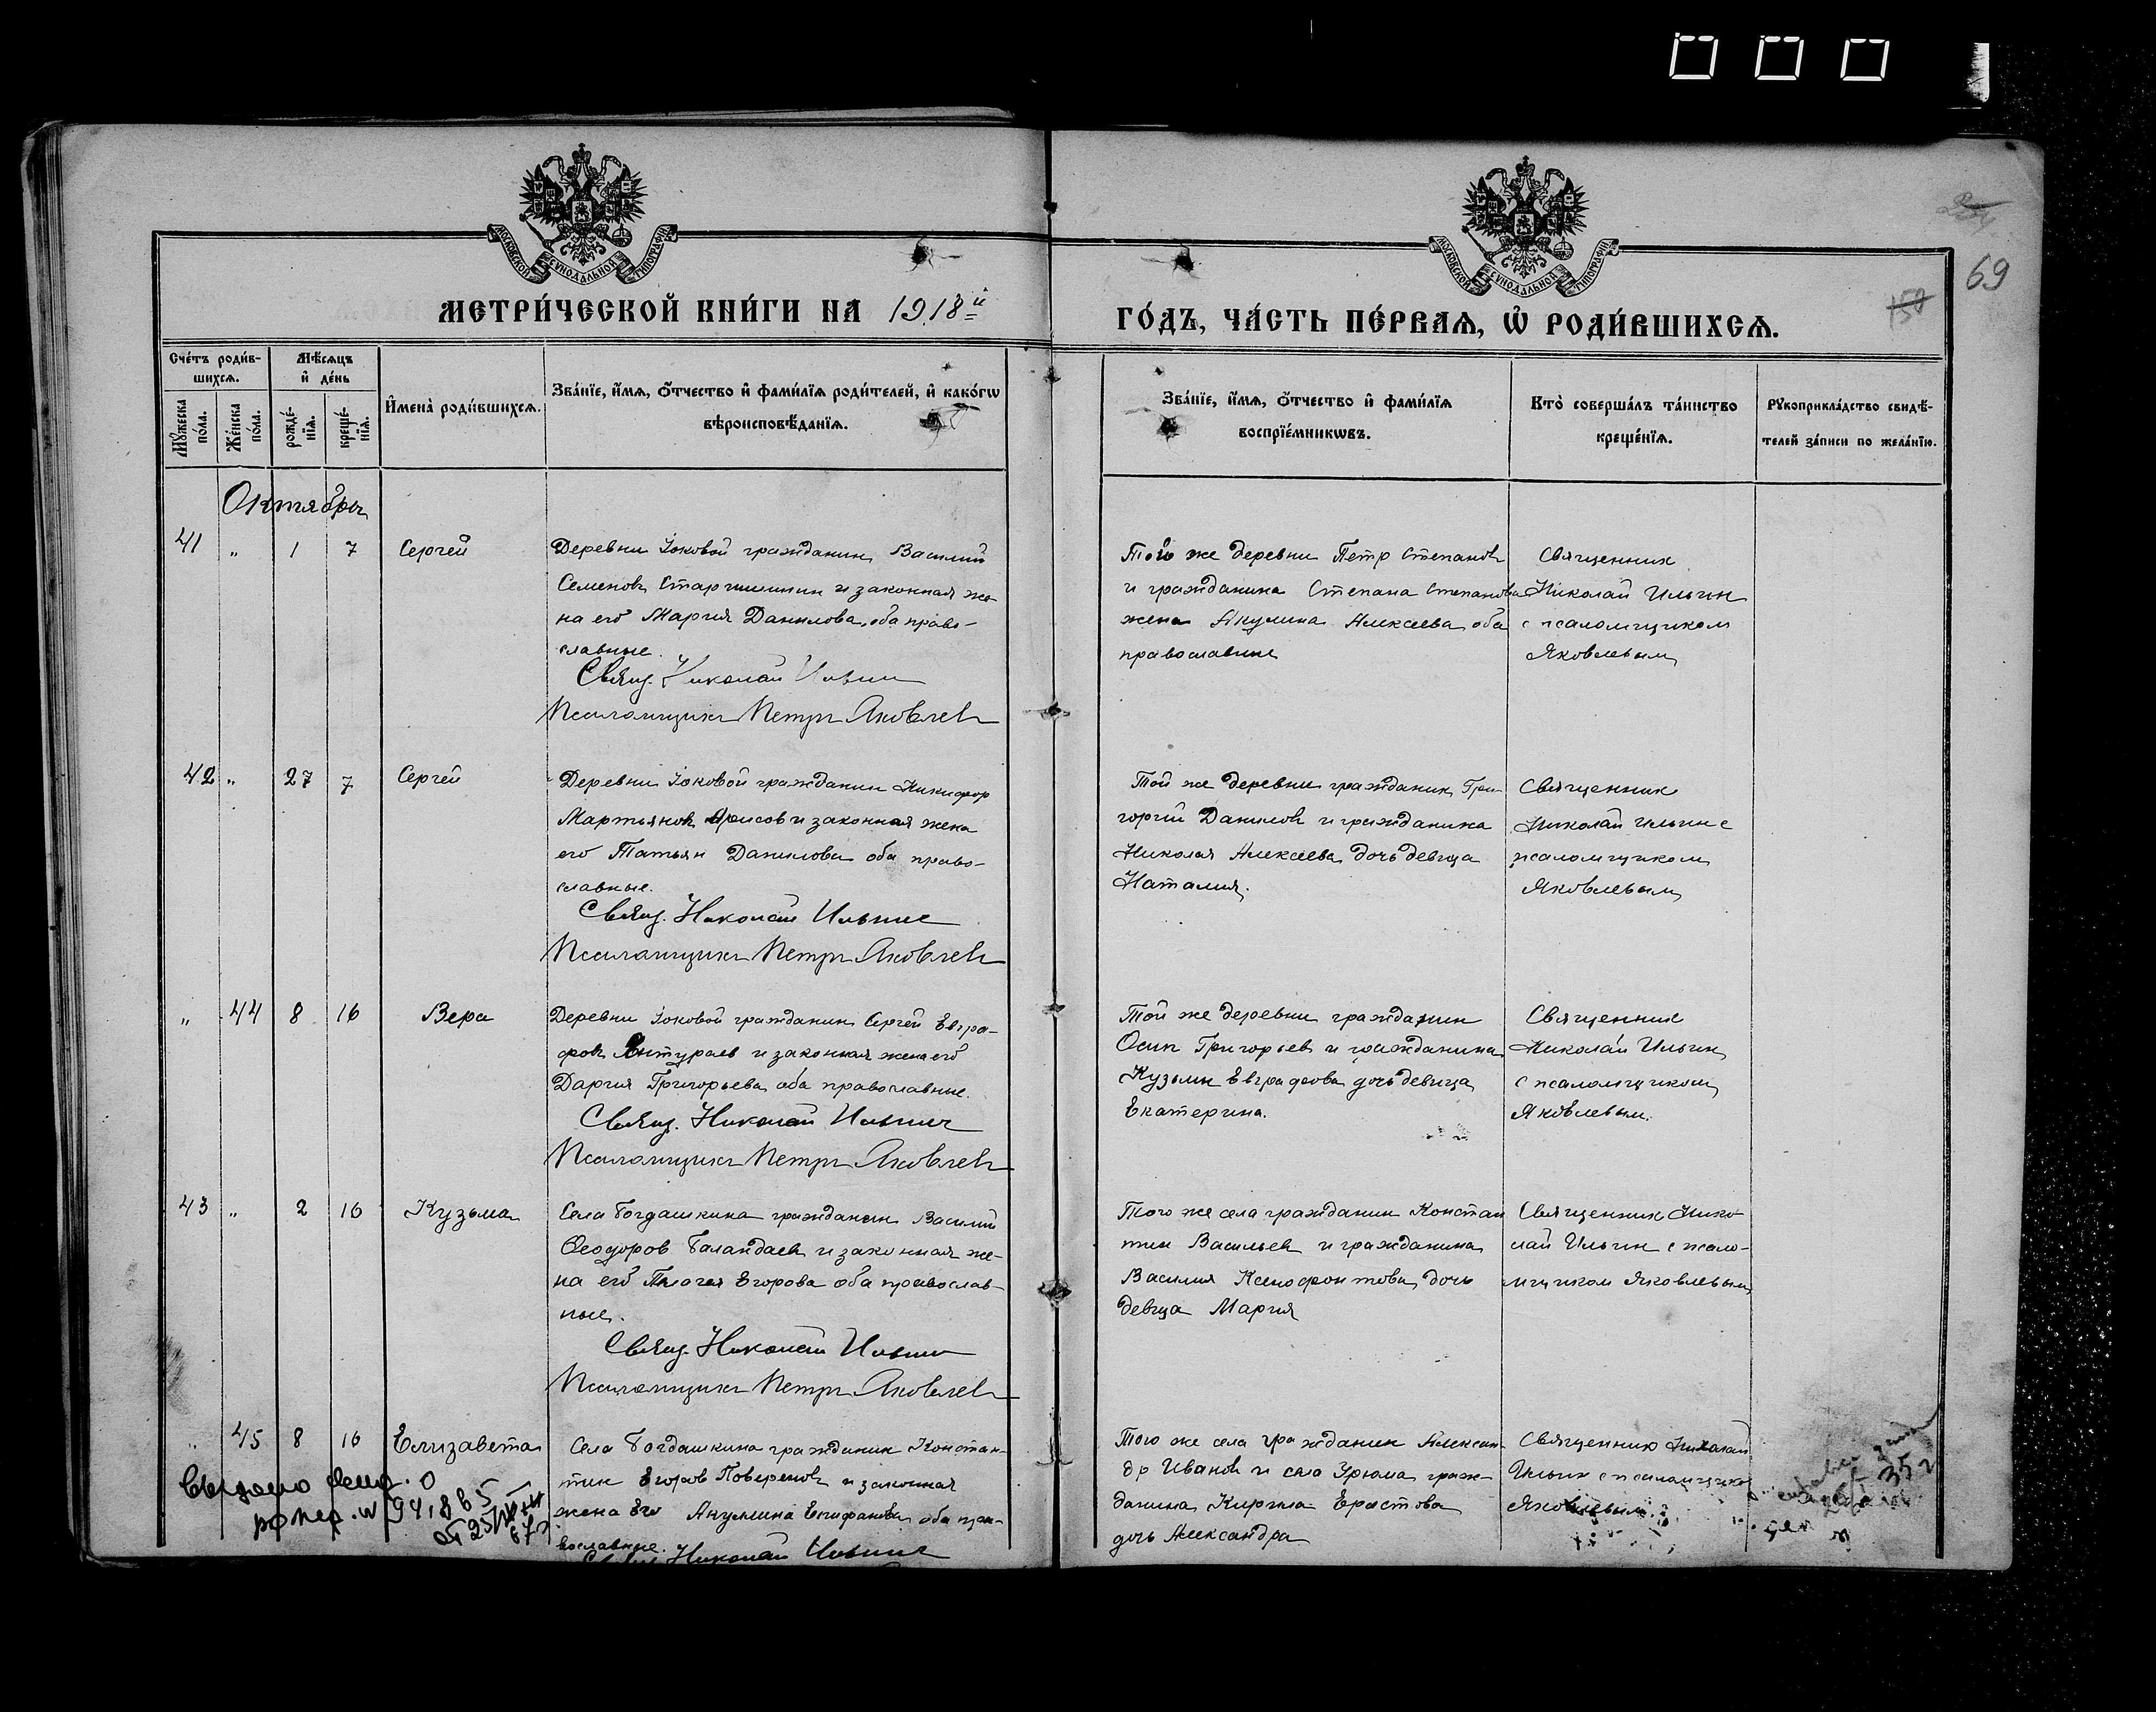 МОСКОВСКОЙ СУНОДАЛЬНОЙ ТИПОГРАФІИ
МОСКОВСКОЙ СУНОДАЛЬНОЙ ТИПОГРАФІИ
69
150
МЕТРИ́ЧЕСКОЙ КНИ́ГИ НА 1918й
ГО́ДЪ, ЧА́СТЬ ПЕ́РВАѦ, Ѡ҆ РОДИ́ВШИХСѦ.
Сче́тъ роди́в-
шихсѧ.
Мѣ́сѧцъ
и҆ де́нь
И҆мена̀ роди́вшихсѧ.
Зва́нїе, и҆́мѧ, ѻ҆́тчество и҆ фами́лїѧ роди́телей, и҆ како́гѡ
вѣроисповѣ́данїѧ.
Мꙋ́жеска
по́ла.
Же́нска
по́ла.
рожде́-
нїѧ.
креще́-
нїѧ.
Зва́нїе, и҆́мѧ, ѻ҆́тчество и҆ фами́лїѧ
воспрїе́мникѡвъ.
Кто̀ соверша́лъ та́инство
креще́нїѧ.
Рꙋкоприкла́дство свидѣ́-
телей за́писи по жела́нїю.
Октябрь
41 „ 1 7 Сергей
Деревни Юковой гражданин Василий
Семенов и законная же-
на его Мария Данилова, оба право-
славные.
Свящ. Николай Ильин
Псаломщикъ Петръ Яковлевъ
Той же деревни Петр Степанов
и гражданина Степана Степанова
жена Акулина Алексеева оба
православные
Священник
Николай Ильин
с псаломщиком
Яковлевым
42 „ 27 7 Сергей
Деревни Юковой гражданин Никифор
Мартьянов и законная жена
его Татьян Данилова оба право-
славные.
Свящ. Николай Ильин
Псаломщикъ Петръ Яковлевъ
Той же деревни гражданин Гри-
горий Данилов и гражданина
Николая Алексеева дочь девица
Наталия.
Священник
Николай Ильин с
псаломщиком
Яковлевым
„ 44 8 16 Вера
Деревни Юковой гражданин Сергей Евгра-
фов Янтураев и законная жена его
Дария Григорьева оба православные.
Свящ. Николай Ильин
Псаломщикъ Петръ Яковлевъ
Той же деревни гражданин
Осип Григорьев и гражданина
Кузьмы Евграфова дочь девица
Екатерина.
Священник
Николай Ильин
с псаломщиком
Яковлевым.
43 „ 2 16 Кузьма
Села Богдашкина гражданин Василий
Феодоров Баландаев и законная же-
на его Пелагея Егорова оба православ-
ные.
Свящ. Николай Ильин
Псаломщикъ Петръ Яковлевъ
Того же села гражданин Констан
тин Васильев и гражданина
Василия Ксенофонтова дочь
девица Мария
Священник Нико-
лай Ильин с псало-
мщиком Яковлевым
„ 45 8 16 Елизавета
Села Богдашкина гражданин Констан-
тин Егоров и законная
жена Его Акулина Епифанова оба пра-
вославные.
Свящ. Николай Ильин
Того же села гражданин Алексан-
др Иванов и села граж-
данина Кирила Ерастова
дочь Александра
Священник Николай
Ильин с псаломщиком
Яковлевым.
Выдано